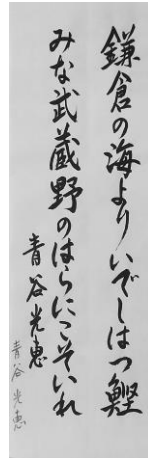 鎌倉の海よりいでしはつ鰹
みな武蔵野のはらにこそいれ
青谷光恵
青谷光恵